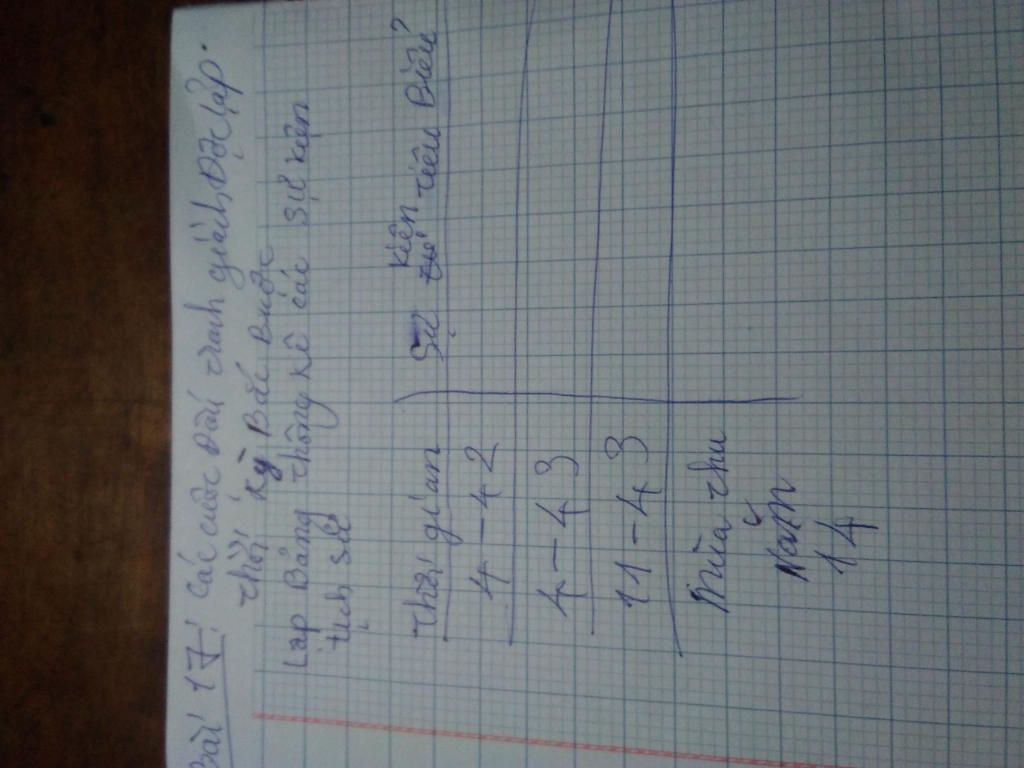 Bài 17: Các cuộc Đấu tranh giành Độc lập.
thời kỳ Bắc Buộc
Lập Bảng thống kê các sự kiện
lịch sử
Thời gian Sự kiện tiêu Biểu
4 - 42
4 - 43
11 - 43
Mùa thu
Năm
14